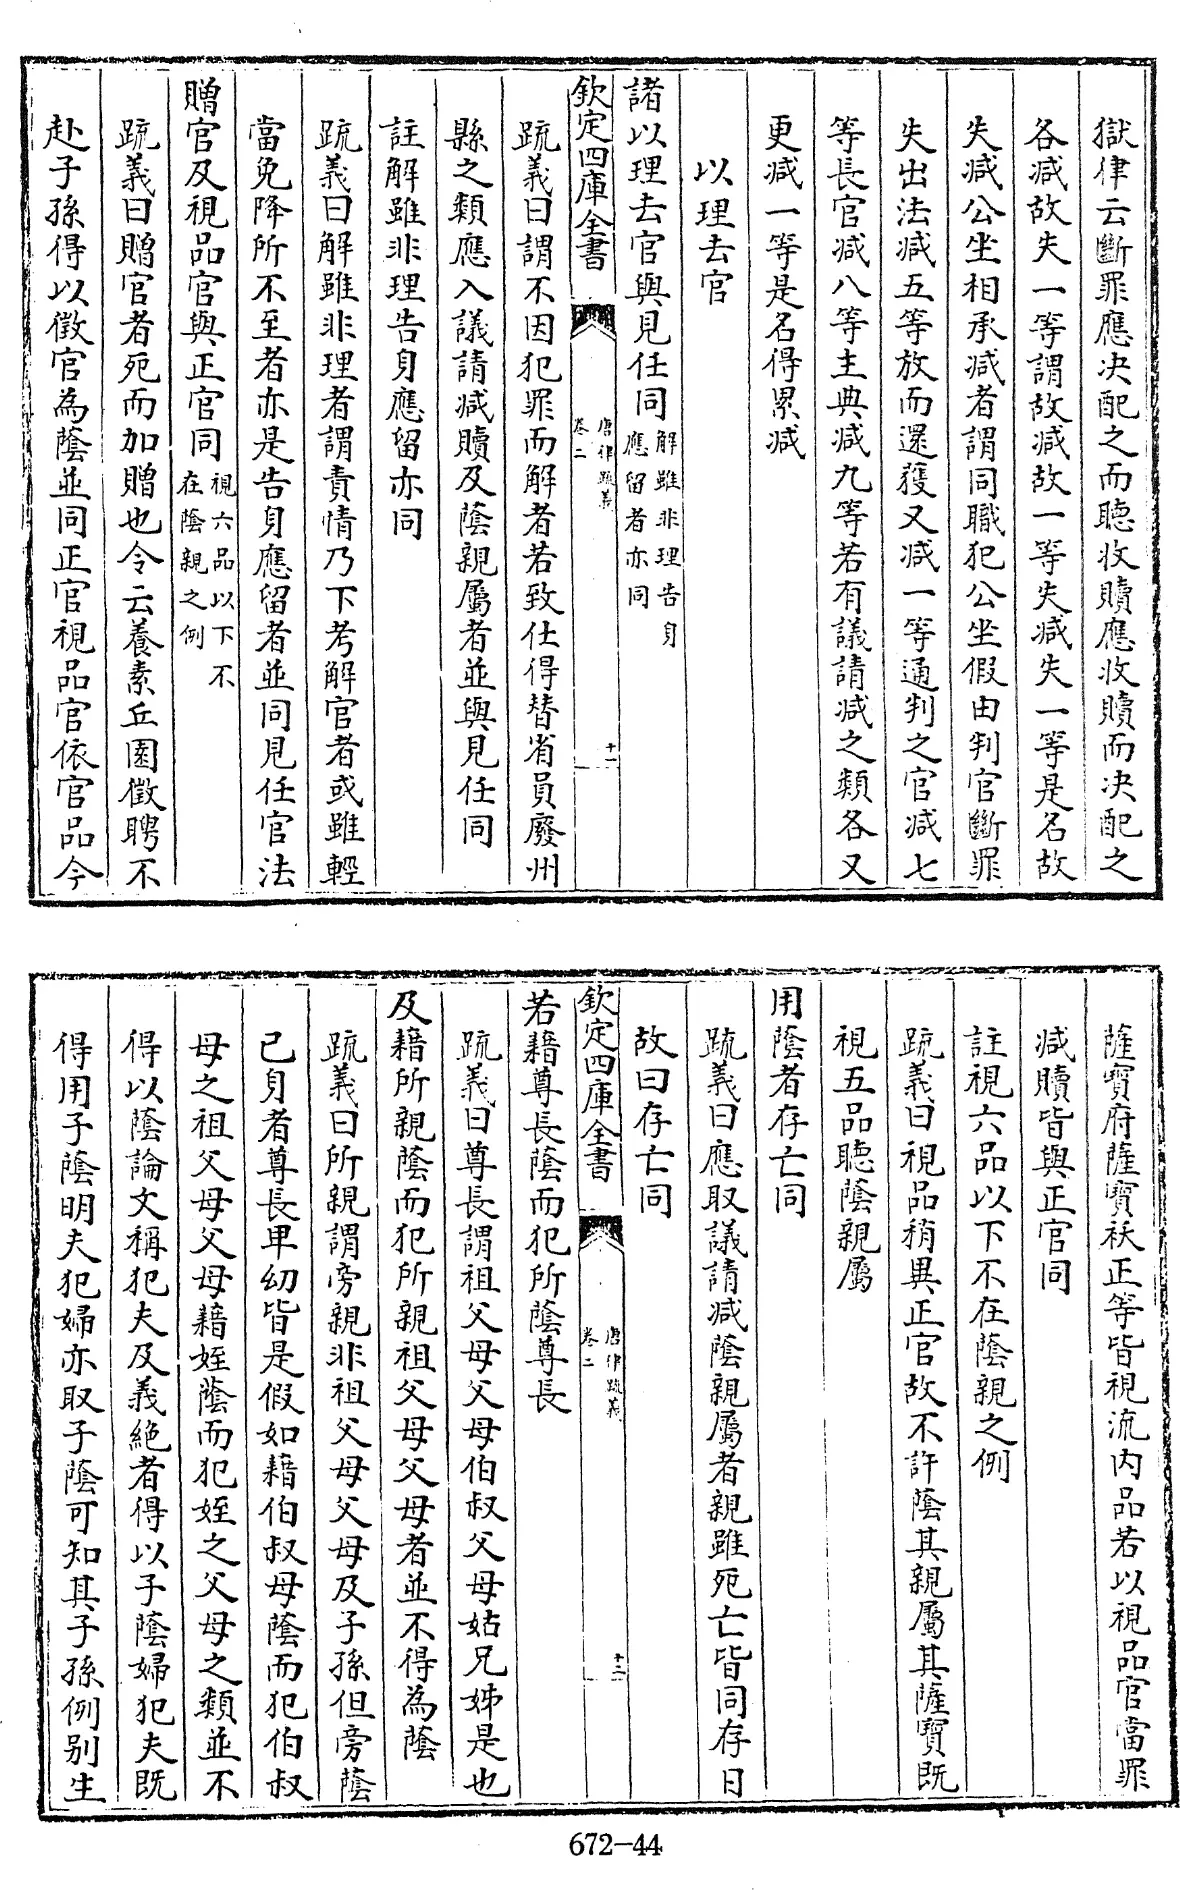 獄律云斷罪應決配之而聽收贖應收贖而決配之
各減故失一等謂故減故一等失減失一等是名故
失減公坐相承減者謂同職犯公坐假由判官斷罪
失出法減五等放而還獲又減一等通判之官減七
等長官減八等主典減九等若有議請減之類各又
更減一等是名得累減
以理去官
諸以理去官與見任同解雖非理告身
應留者亦同
欽定四庫全書
唐律疏義
卷二
十一
疏義曰謂不因犯罪而解者若致仕得替省員廢州
縣之類應入議請減贖及蔭親屬者並與見任同
註解雖非理告身應留亦同
疏義曰解雖非理者謂責情乃下考解官者或雖輕
當免降所不至者亦是告身應留者並同見任官法
贈官及視品官與正官同視六品以下不
在蔭親之例
疏義曰贈官者死而加贈也令云養素丘園徵聘不
赴子孫得以徵官為蔭並同正官視品官依官品令
薩寶府薩寶祆正等皆視流內品若以視品官當罪
減贖皆與正官同
註視六品以下不在蔭親之例
疏義曰視品稍異正官故不許蔭其親屬其薩寶既
視五品聽蔭親屬
用蔭者存亡同
疏義曰應取議請減蔭親屬者親雖死亡皆同存日
故曰存亡同
欽定四庫全書
唐律疏義
卷二
十二
若藉尊長蔭而犯所蔭尊長
疏義曰尊長謂祖父母父母伯叔父母姑兄姊是也
及藉所親蔭而犯所親祖父母父母者並不得為蔭
疏義曰所親謂旁親非祖父母父母及子孫但旁蔭
己身者尊長卑幼皆是假如藉伯叔母蔭而犯伯叔
母之祖父母父母藉姪蔭而犯姪之父母之類並不
得以蔭論文稱犯夫及義絕者得以子蔭婦犯夫既
得用子蔭明夫犯婦亦取子蔭可知其子孫例别生
672-44